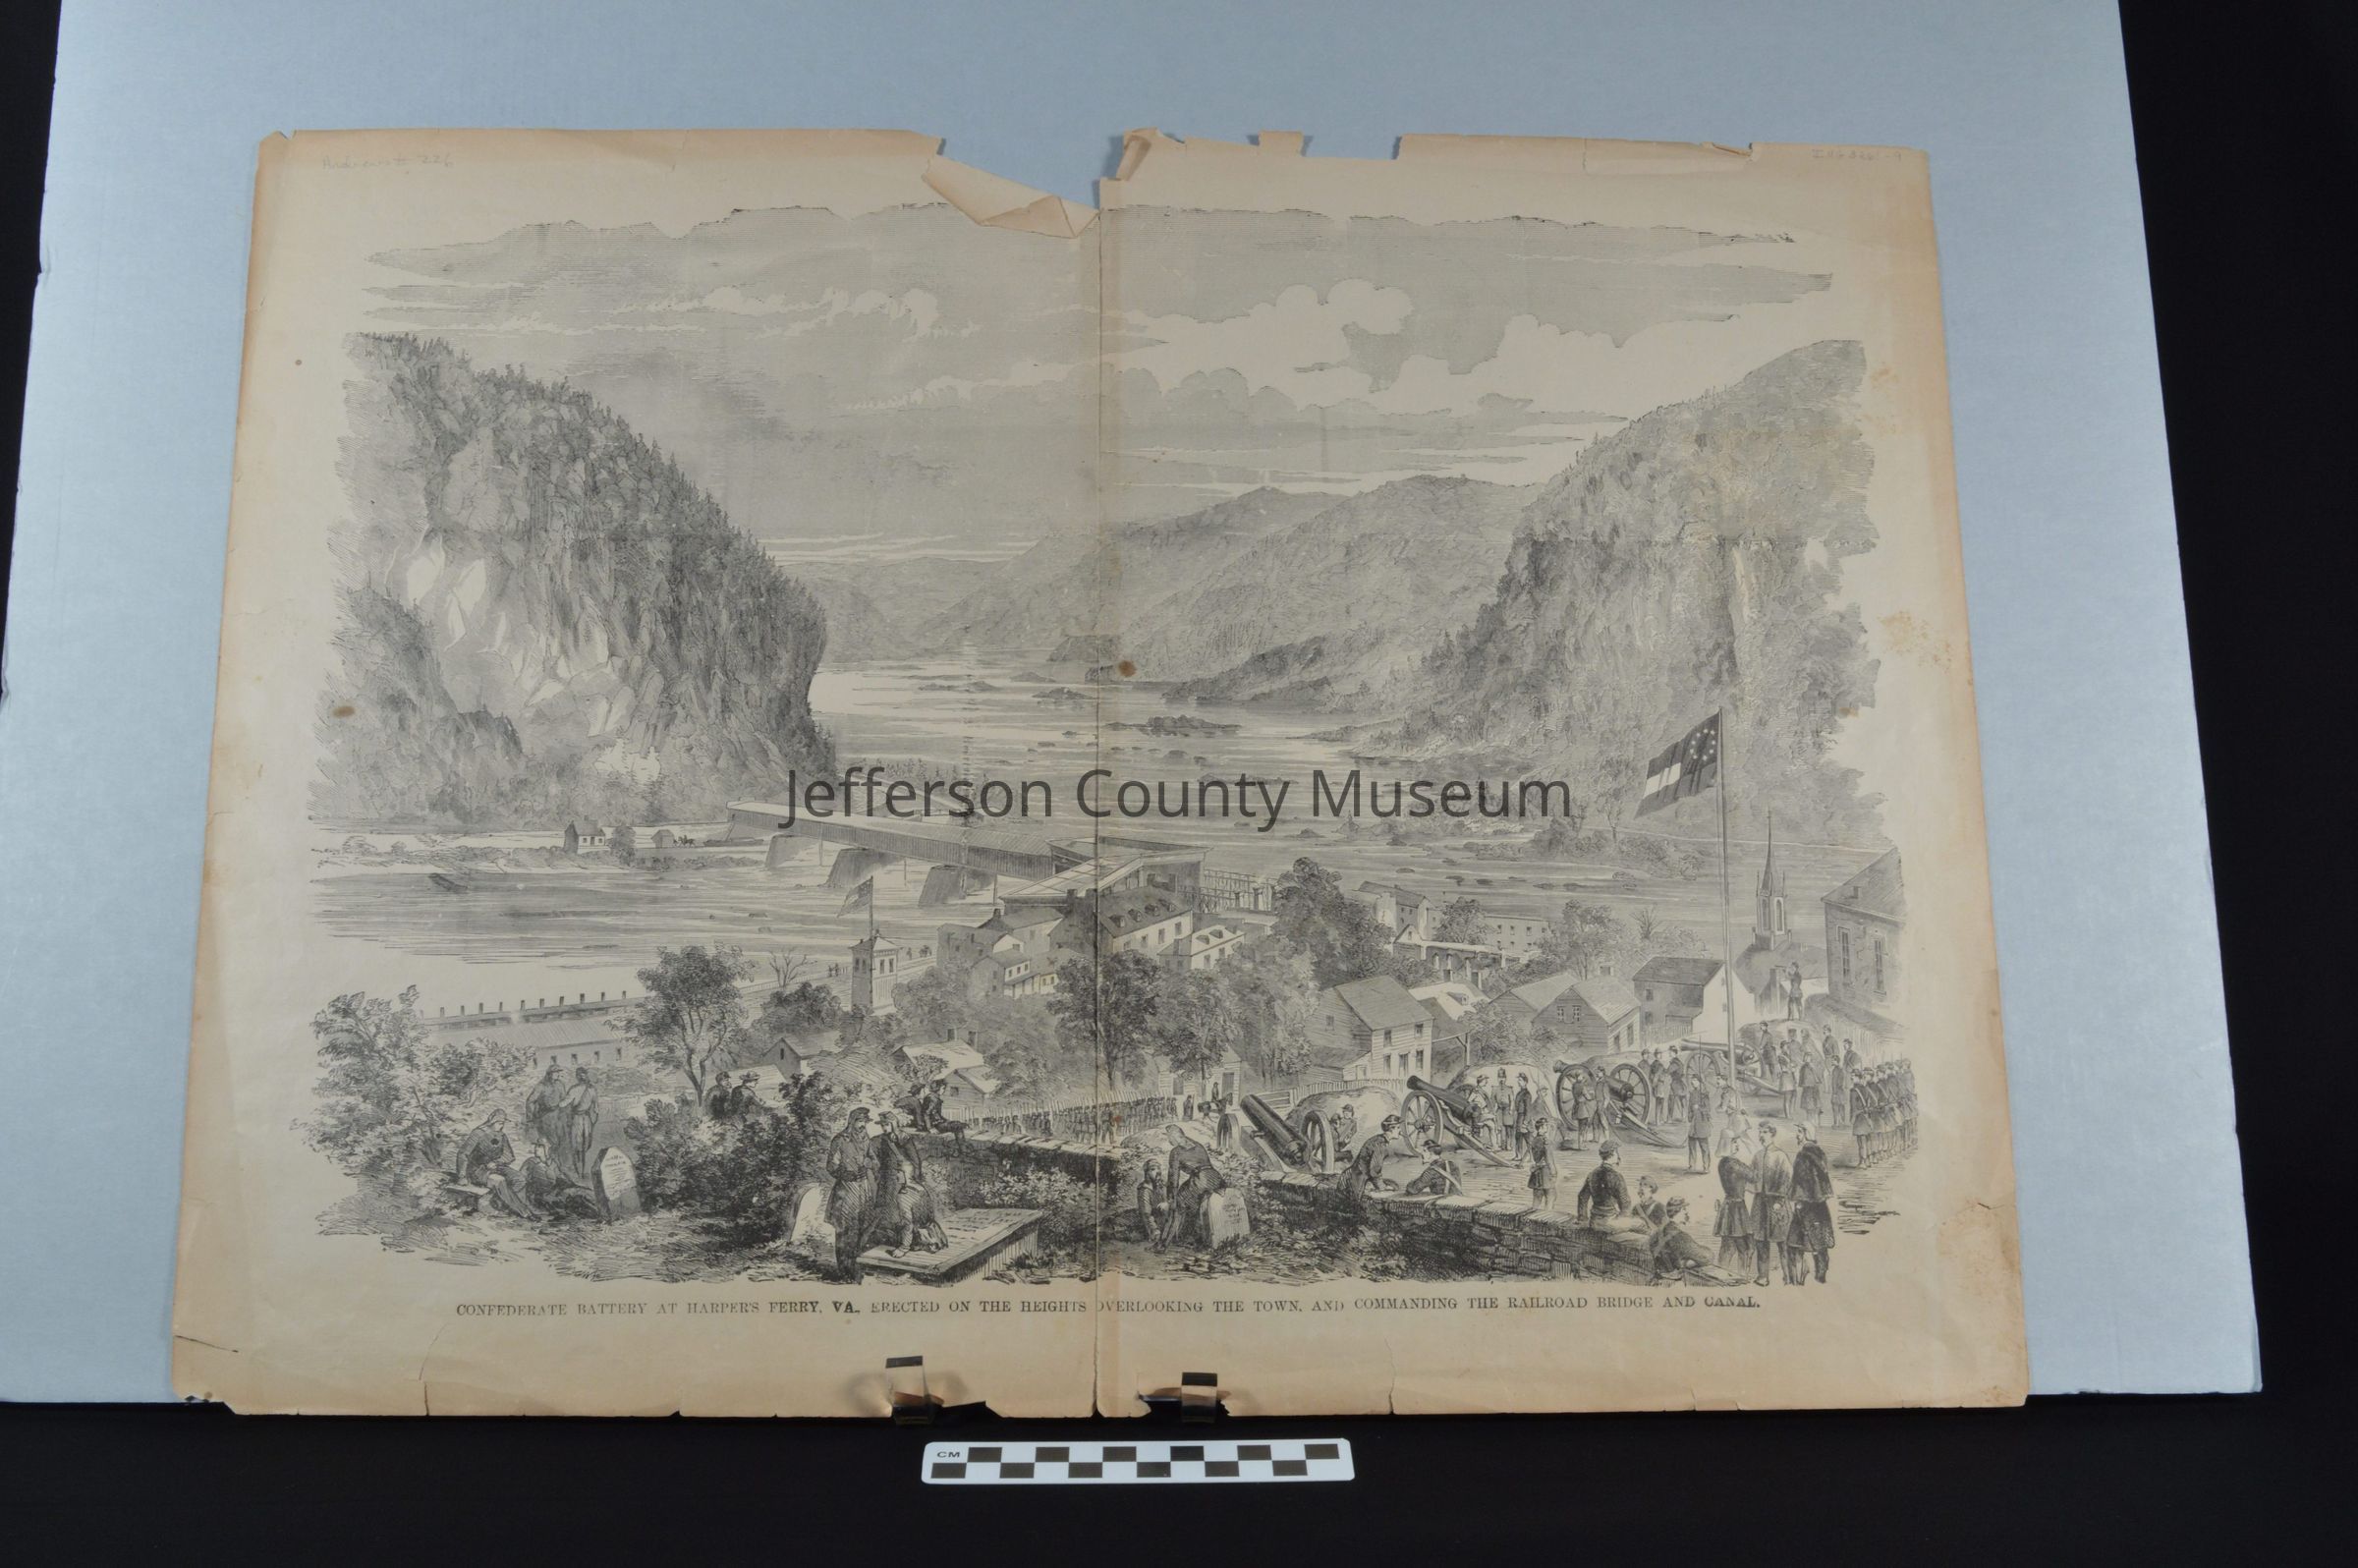 226
Jefferson County Museum
CONFEDERATE BATTERY AT HARPER'S FERRY, VA., ERECTED ON THE HEIGHTS OVERLOOKING THE TOWN, AND COMMANDING THE RAILROAD BRIDGE AND CANAL.
CM